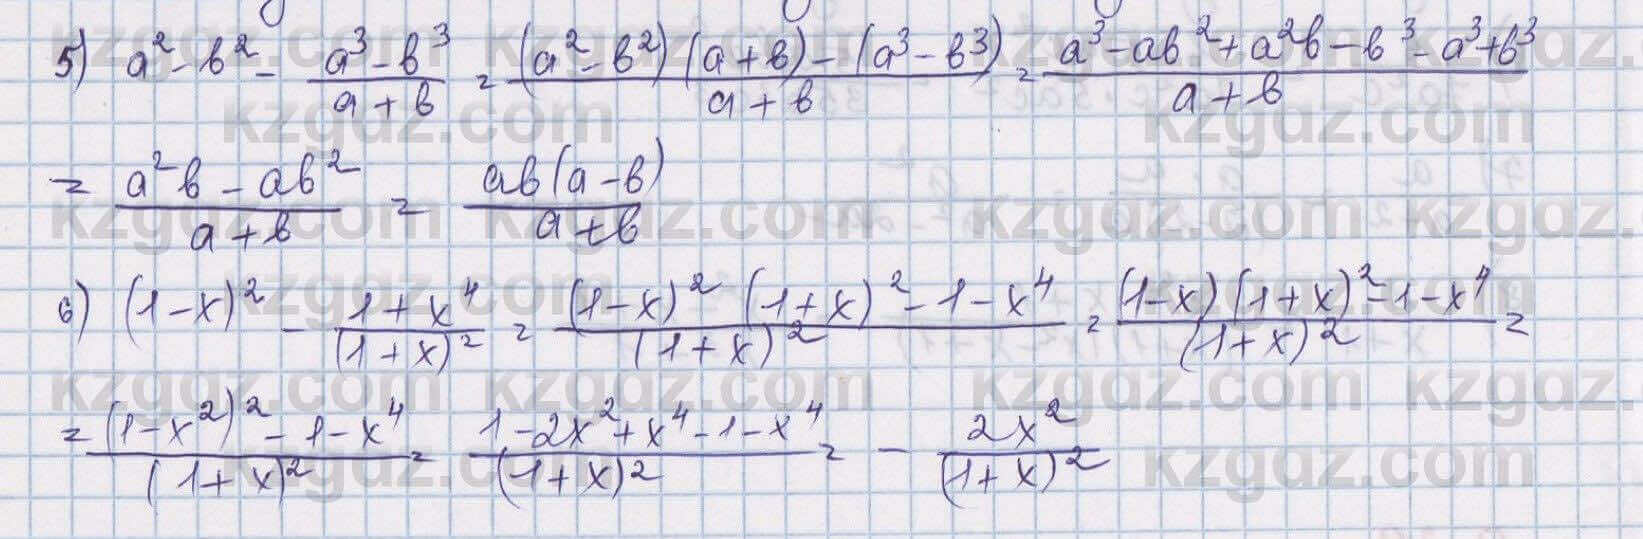 5) a² - b² - (a³ - b³)/(a + b) = ((a² - b²)(a + b) - (a³ - b³))/(a + b) = (a³ - ab² + a²b - b³ - a³ + b³)/(a + b)
= (a²b - ab²)/(a + b) = ab(a - b)/(a + b)
6) (1 - x)² - (1 + x⁴)/(1 + x)² = ((1 - x)² (1 + x)² - 1 - x⁴)/(1 + x)² = ((1 - x)(1 + x)² - 1 - x⁴)/(1 + x)² =
= ((1 - x²)² - 1 - x⁴)/(1 + x)² = (1 - 2x² + x⁴ - 1 - x⁴)/(1 + x)² = - 2x²/(1 + x)²
kzgdz.com kzgdz.com
kzgdz.com kzgdz.com
kzgdz.com kzgdz.com
kzgdz.com kzgdz.com
kzgdz.com kzgdz.com